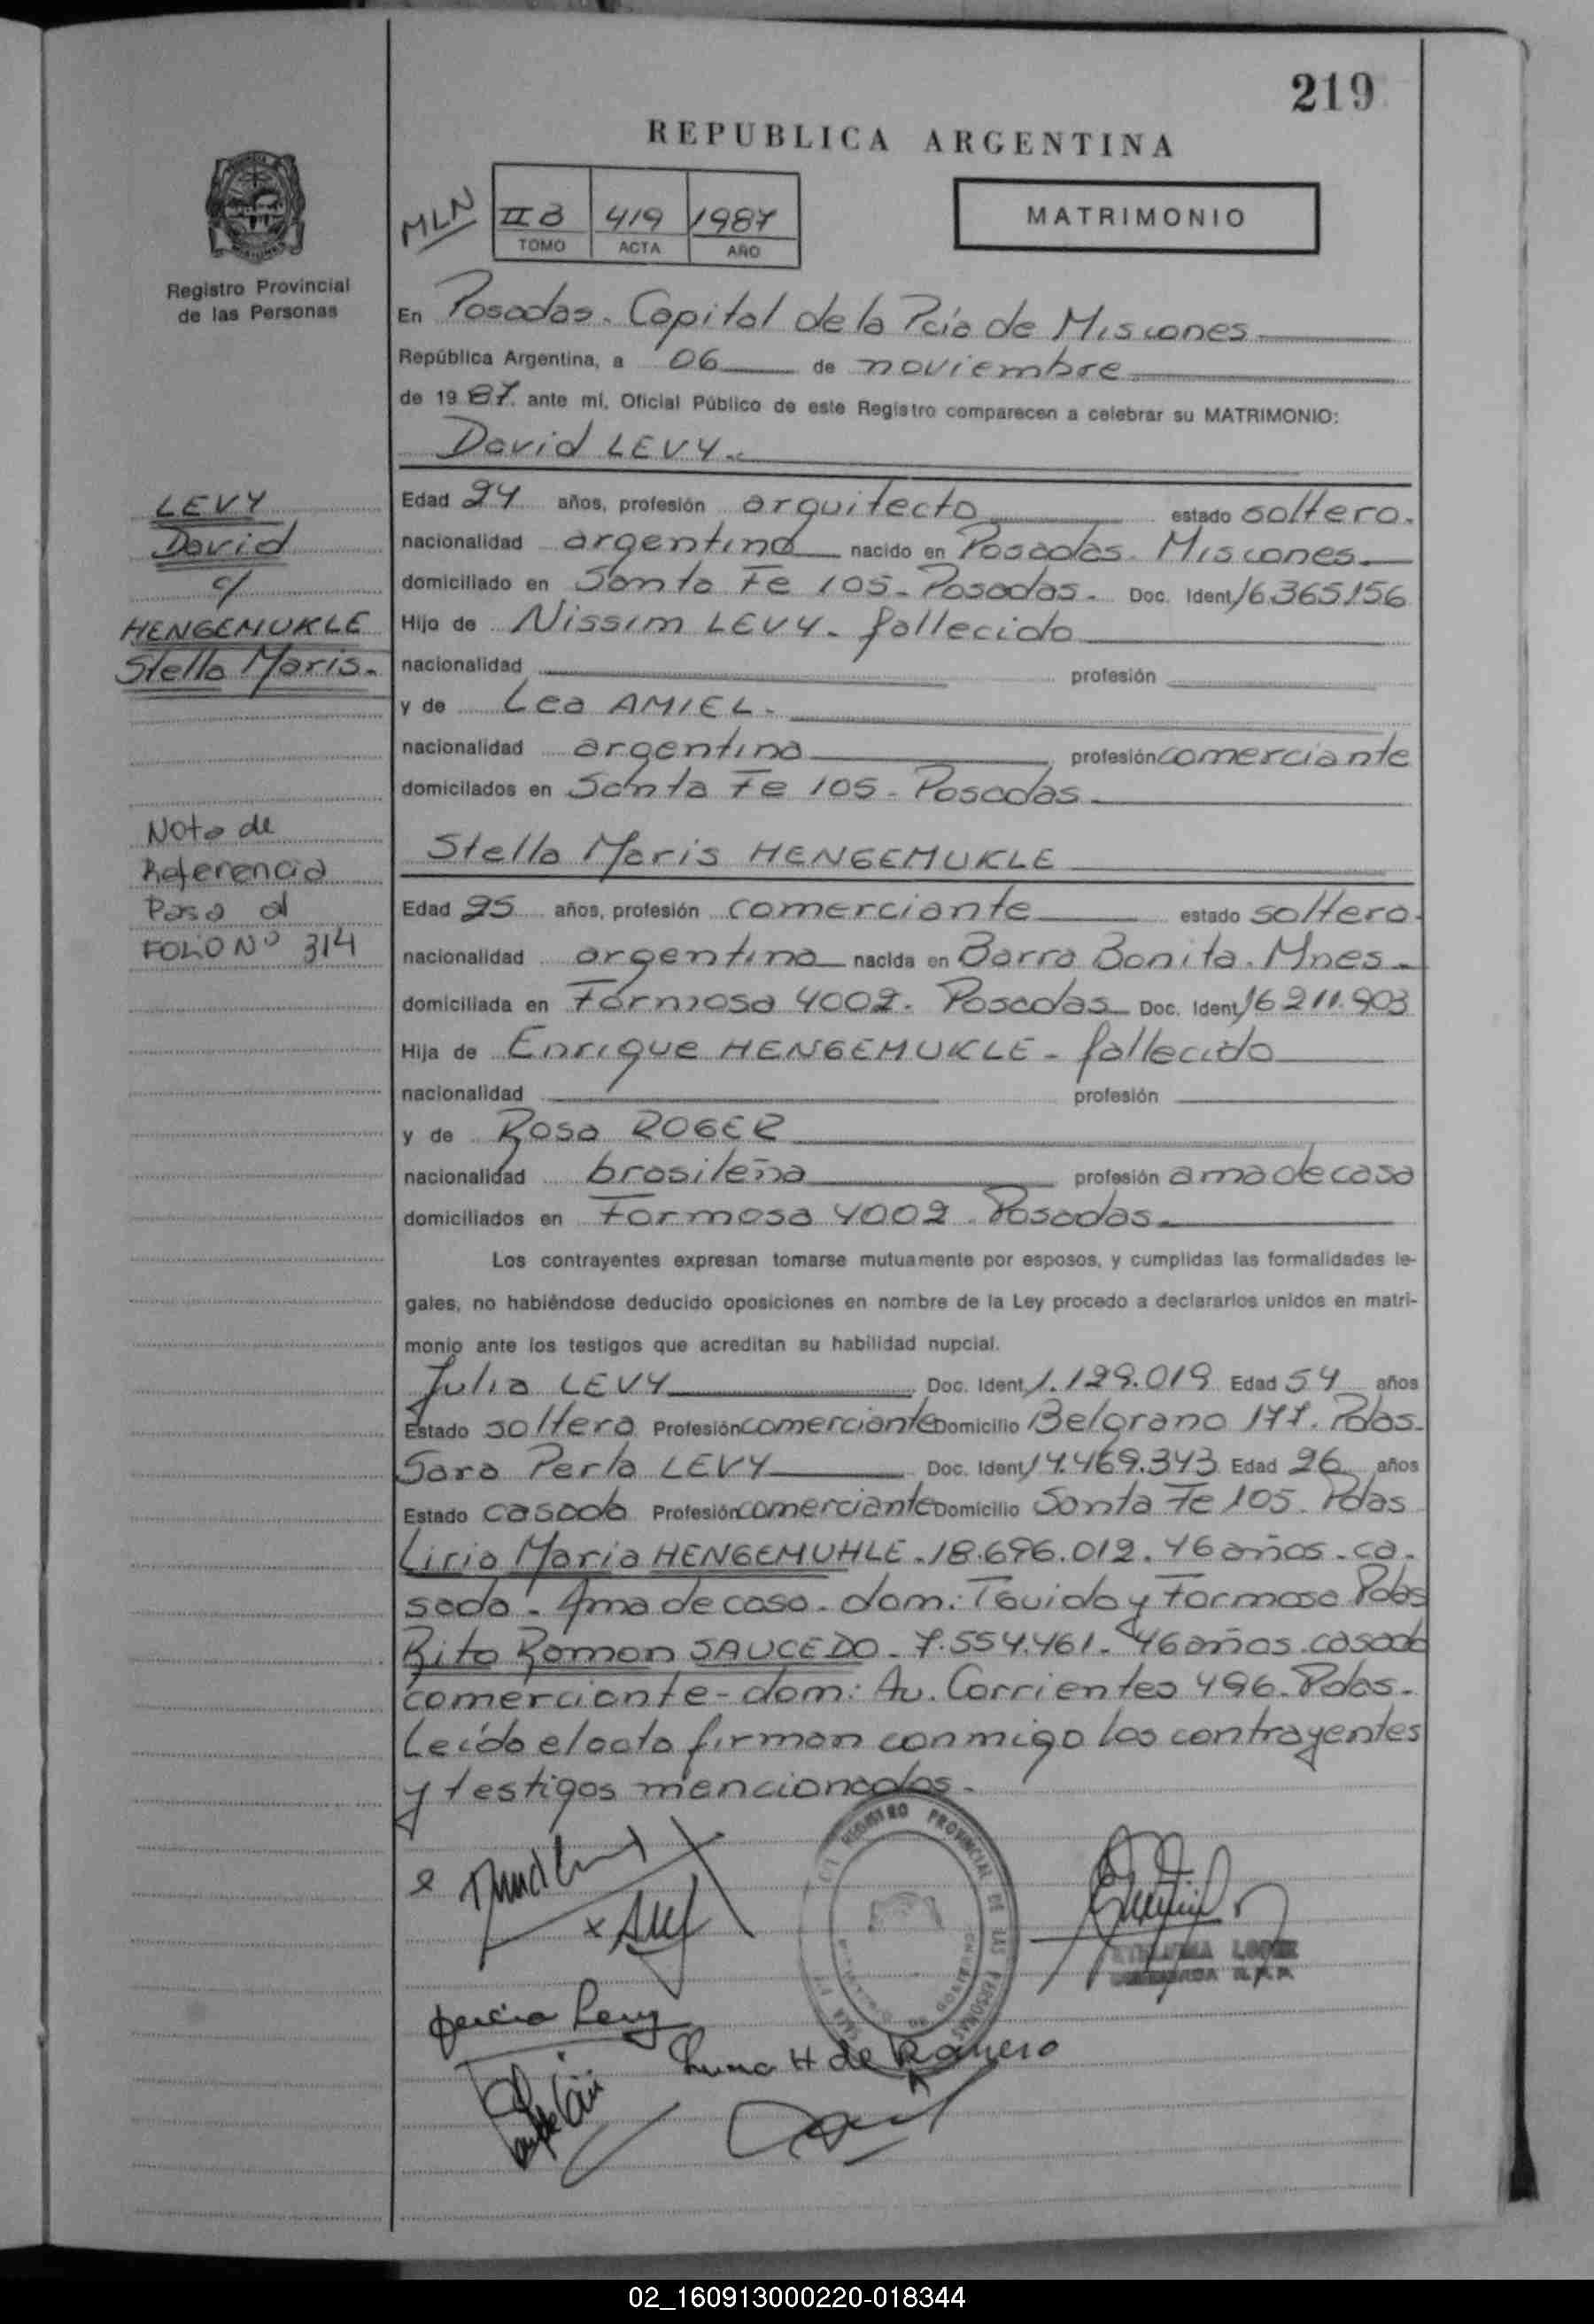 219
REPUBLICA ARGENTINA
MLN
II B 419 1987
TOMO ACTA AÑO
MATRIMONIO
Registro Provincial
de las Personas
En Posadas. Capital de la Pcia de Misiones
República Argentina, a 06 de noviembre
de 1987. ante mí, Oficial Público de este Registro comparecen a celebrar su MATRIMONIO:
David LEVY.
LEVY
David
c/
HENGEMUKLE
Stella Maris.
Edad 24 años, profesión arquitecto estado soltero.
nacionalidad argentina nacido en Posadas. Misiones.
domiciliado en Santa Fe 105 - Posadas. Doc. Ident. 16.365.156
Hijo de Nissim LEVY - fallecido
nacionalidad profesión
y de Lea AMIEL.
nacionalidad argentina profesión comerciante
domiciliados en Santa Fe 105 - Posadas.
Nota de
Referencia
Pasa al
FOLIO Nº 314
Stella Maris HENGEMUKLE
Edad 25 años, profesión comerciante estado soltera.
nacionalidad argentina nacida en Barra Bonita. Mnes.
domiciliada en Formosa 4002. Posadas Doc. Ident. 16.211.903
Hija de Enrique HENGEMUKLE - fallecido
nacionalidad profesión
y de Rosa ROGER
nacionalidad brasileña profesión ama de casa
domiciliados en Formosa 4002. Posadas.
Los contrayentes expresan tomarse mutuamente por esposos, y cumplidas las formalidades le-
gales, no habiéndose deducido oposiciones en nombre de la Ley procedo a declararlos unidos en matri-
monio ante los testigos que acreditan su habilidad nupcial.
Julia LEVY Doc. Ident. 1.129.019 Edad 54 años
Estado soltera Profesión comerciante Domicilio Belgrano 177. Pdas.
Sara Perla LEVY Doc. Ident. 14.469.343 Edad 26 años
Estado casada Profesión comerciante Domicilio Santa Fe 105. Pdas
Liria Maria HENGEMUHLE - 18.696.012. 46 años - ca-
sada - Ama de casa - dom: y Formosa Pdas
Rito Ramon SAUCEDO - 7.554.461 - 46 años. casado
comerciante - dom: Av. Corrientes 496. Pdas.
Leída el acta firman conmigo los contrayentes
y testigos mencionados.
REGISTRO PROVINCIAL DE LAS PERSONAS
LOPEZ
H de
02_160913000220-018344